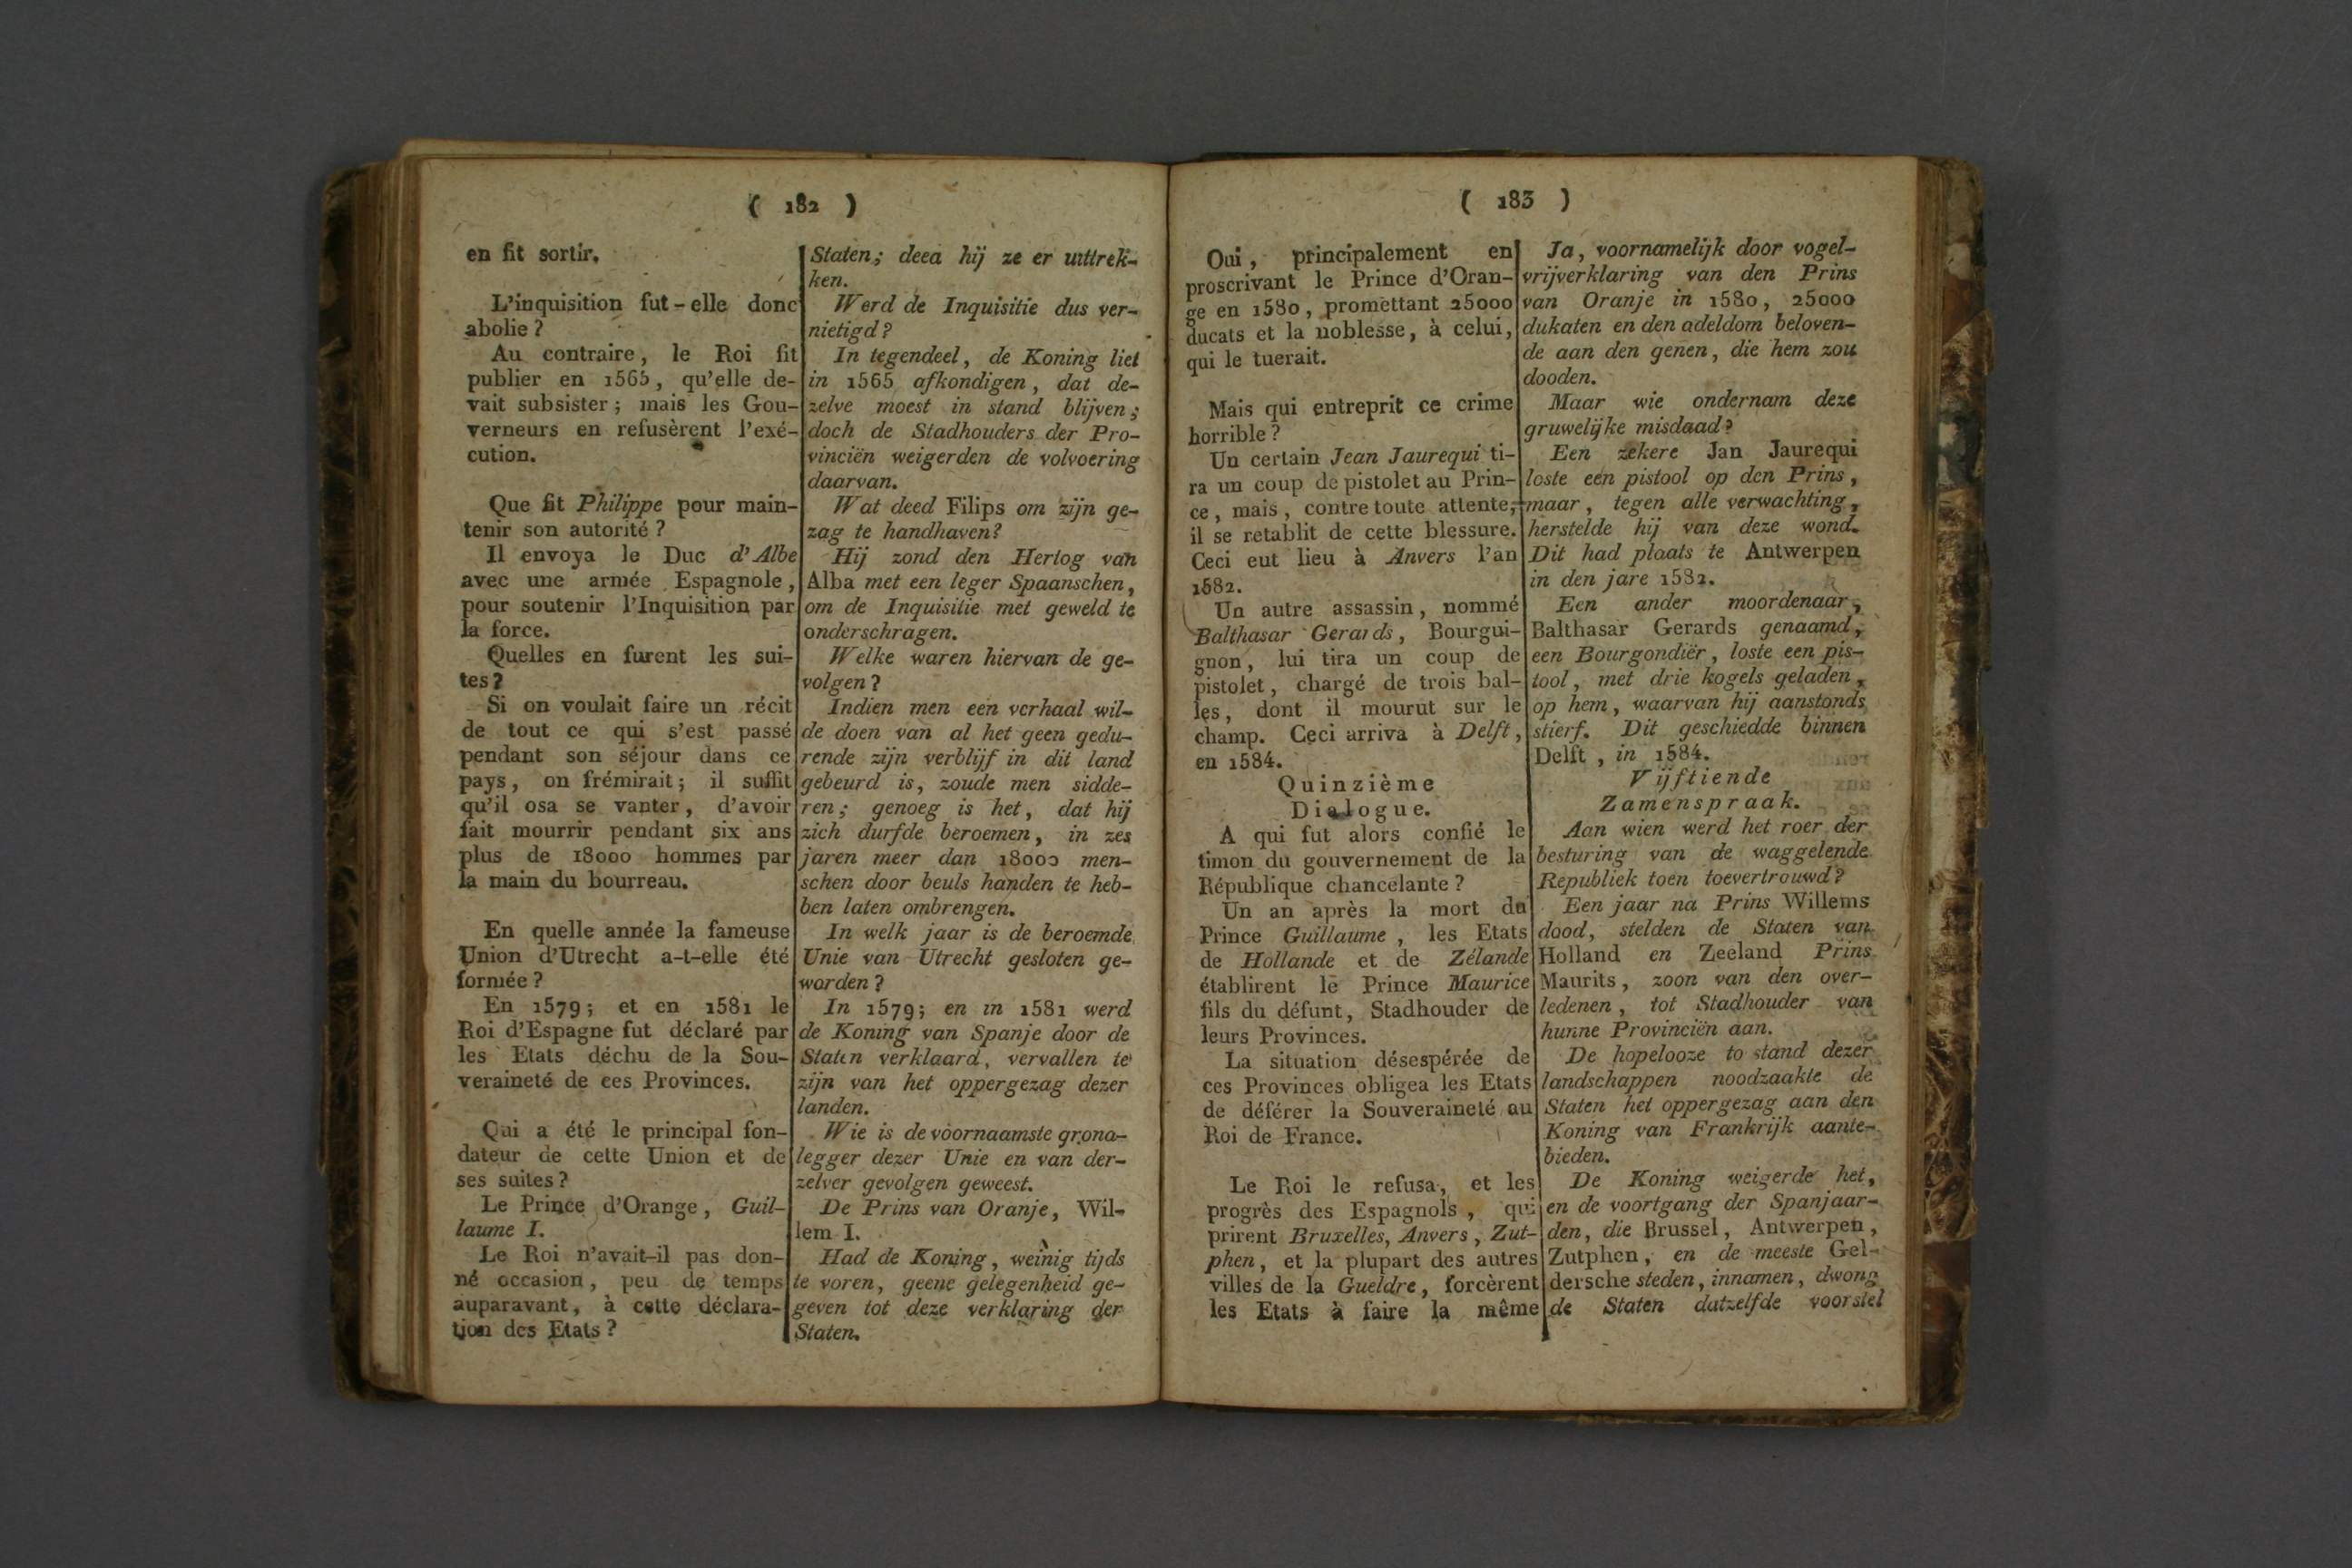 ( 182 )
en fit sortir.
L'inquisition fut-elle donc
abolie ?
Au contraire, le Roi fit
publier en 1565, qu'elle de-
vait subsister ; mais les Gou-
verneurs en refusèrent l'exé-
cution.
Que fit Philippe pour main-
tenir son autorité ?
Il envoya le Duc d'Albe
avec une armée Espagnole,
pour soutenir l'Inquisition par
la force.
Quelles en furent les sui-
tes ?
Si on voulait faire un récit
de tout ce qui s'est passé
pendant son séjour dans ce
pays, on frémirait ; il suffit
qu'il osa se vanter, d'avoir
fait mourrir pendant six ans
plus de 18000 hommes par
la main du bourreau.
En quelle année la fameuse
Union d'Utrecht a-t-elle été
formée ?
En 1579 ; et en 1581 le
Roi d'Espagne fut déclaré par
les Etats déchu de la Sou-
veraineté de ces Provinces.
Qui a été le principal fon-
dateur de cette Union et de
ses suites ?
Le Prince d'Orange, Guil-
laume I.
Le Roi n'avait-il pas don-
né occasion, peu de temps
auparavant, à cette déclara-
tion des Etats ?
Staten; deed hij ze er uittrek-
ken.
Werd de Inquisitie dus ver-
nietigd ?
In tegendeel, de Koning liet
in 1565 afkondigen, dat de-
zelve moest in stand blijven ;
doch de Stadhouders der Pro-
vinciën weigerden de volvoering
daarvan.
Wat deed Filips om zijn ge-
zag te handhaven?
Hij zond den Hertog van
Alba met een leger Spaanschen,
om de Inquisitie met geweld te
onderschragen.
Welke waren hiervan de ge-
volgen ?
Indien men een verhaal wil-
de doen van al het geen gedu-
rende zijn verblijf in dit land
gebeurd is, zoude men sidde-
ren ; genoeg is het, dat hij
zich durfde beroemen, in zes
jaren meer dan 18000 men-
schen door beuls handen te heb-
ben laten ombrengen.
In welk jaar is de beroemde
Unie van Utrecht gesloten ge-
worden ?
In 1579; en in 1581 werd
de Koning van Spanje door de
Staten verklaard, vervallen te
zijn van het oppergezag dezer
landen.
Wie is de voornaamste grond-
legger dezer Unie en van der-
zelver gevolgen geweest.
De Prins van Oranje, Wil-
lem I.
Had de Koning, weinig tijds
te voren, geene gelegenheid ge-
geven tot deze verklaring der
Staten.
( 183 )
Oui, principalement en
proscrivant le Prince d'Oran-
ge en 1580, promettant 25000
ducats et la noblesse, à celui,
qui le tuerait.
Mais qui entreprit ce crime
horrible ?
Un certain Jean Jaurequi ti-
ra un coup de pistolet au Prin-
ce, mais, contre toute attente,
il se retablit de cette blessure.
Ceci eut lieu à Anvers l'an
1582.
Un autre assassin, nommé
Balthasar Gerards, Bourgui-
gnon, lui tira un coup de
pistolet, chargé de trois bal-
les, dont il mourut sur le
champ. Ceci arriva à Delft,
en 1584.
Quinzième
Dialogue.
A qui fut alors confié le
timon du gouvernement de la
République chancelante ?
Un an après la mort du
Prince Guillaume, les Etats
de Hollande et de Zélande
établirent le Prince Maurice
fils du défunt, Stadhouder de
leurs Provinces.
La situation désespérée de
ces Provinces obligea les Etats
de déférer la Souveraineté au
Roi de France.
Le Roi le refusa, et les
progrès des Espagnols, qui
prirent Bruxelles, Anvers, Zut-
phen, et la plupart des autres
villes de la Gueldre, forcèrent
les Etats à faire la même
Ja, voornamelijk door vogel-
vrijverklaring van den Prins
van Oranje in 1580, 25000
dukaten en den adeldom beloven-
de aan den genen, die hem zou
dooden.
Maar wie ondernam deze
gruwelijke misdaad?
Een zekere Jan Jaurequi
loste een pistool op den Prins,
maar, tegen alle verwachting,
herstelde hij van deze wond.
Dit had plaats te Antwerpen
in den jare 1582.
Een ander moordenaar,
Balthasar Gerards genaamd,
een Bourgondiër, loste een pis-
tool, met drie kogels geladen,
op hem, waarvan hij aanstonds
stierf. Dit geschiedde binnen
Delft, in 1584.
Vijftiende
Zamenspraak.
Aan wien werd het roer der
besturing van de waggelende
Republiek toen toevertrouwd?
Een jaar na Prins Willems
dood, stelden de Staten van
Holland en Zeeland Prins
Maurits, zoon van den over-
ledenen, tot Stadhouder van
hunne Provinciën aan.
De hopelooze to stand dezer
landschappen noodzaakte de
Staten het oppergezag aan den
Koning van Frankrijk aante-
bieden.
De Koning weigerde het,
en de voortgang der Spanjaar-
den, die Brussel, Antwerpen,
Zutphen, en de meeste Gel-
dersche steden, innamen, dwong
de Staten datzelfde voorstel